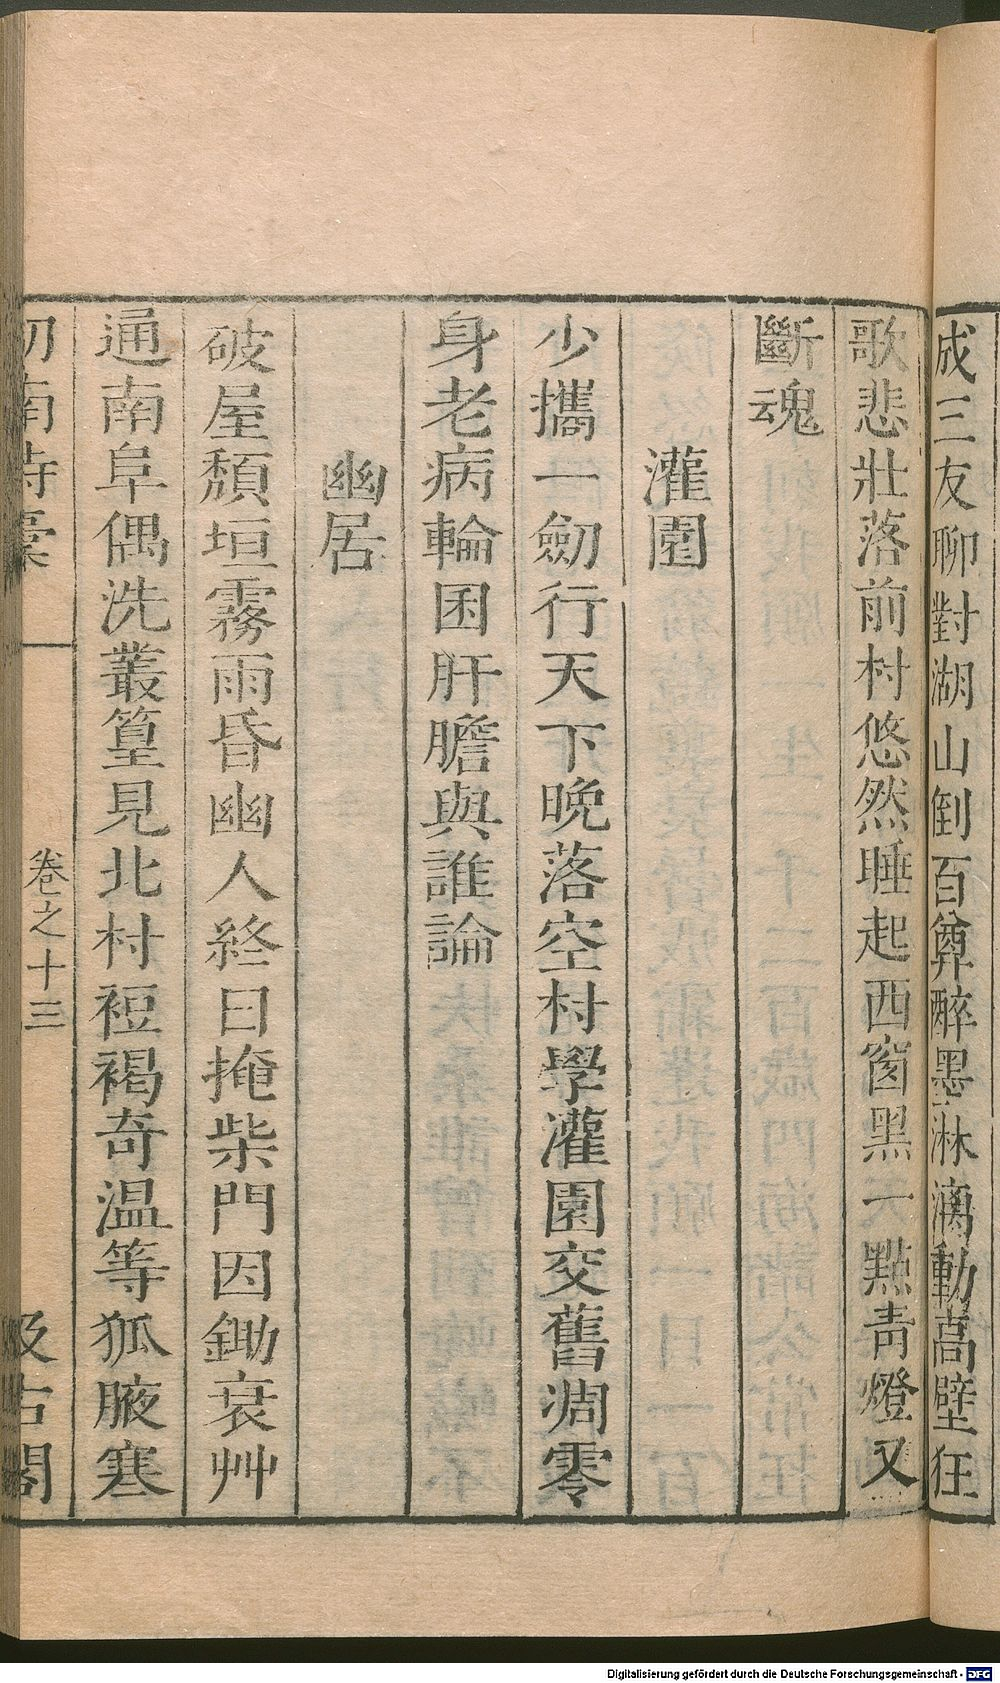 成三友聊對湖山倒百尊醉墨淋漓動高壁狂
歌悲壯落前村悠然睡起西窗黑一點青燈又
斷魂
灌園
少攜一劒行天下晚落空村學灌園交舊凋零
身老病輪囷肝膽與誰論
幽居
破屋頹垣霧雨昏幽人終日掩柴門因鋤衰艸
通南阜偶洗叢篁見北村裋褐奇溫等狐腋寒
劒南詩稾 卷之十三 汲古閣
Digitalisierung gefördert durch die Deutsche Forschungsgemeinschaft - DFG